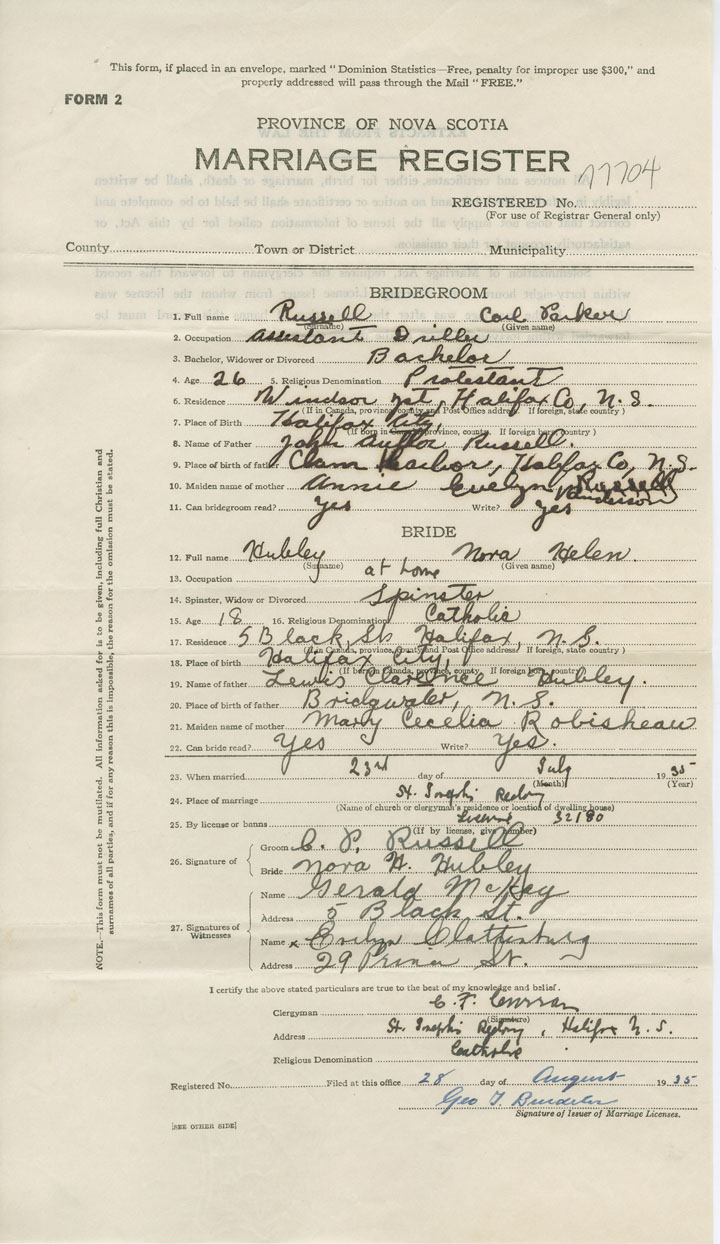 This form, if placed in an envelope, marked "Dominion Statistics—Free, penalty for improper use $300," and
properly addressed will pass through the Mail "FREE."
FORM 2
PROVINCE OF NOVA SCOTIA
MARRIAGE REGISTER 77704
REGISTERED No.
(For use of Registrar General only)
County Town or District Municipality
BRIDEGROOM
1. Full name Russell Carl Parker
(Surname) (Given name)
2. Occupation Assistant Driller
3. Bachelor, Widower or Divorced Bachelor
4. Age 26 5. Religious Denomination Protestant
6. Residence Windsor Jct, Halifax Co, N.S.
(If in Canada, province, county and Post Office address If foreign, state country)
7. Place of Birth Halifax City,
(If born in Canada, province, county. If foreign born, country)
8. Name of Father John Russell.
9. Place of birth of father Clam Harbor, Halifax Co, N.S.
10. Maiden name of mother Annie Evelyn Russell
Anderson
11. Can bridegroom read? Yes Write? Yes
BRIDE
12. Full name Hubley Nora Helen.
(Surname) (Given name)
13. Occupation at home
14. Spinster, Widow or Divorced Spinster
15. Age 18 16. Religious Denomination Catholic
17. Residence 5 Black St. Halifax, N.S.
(If in Canada, province, county and Post Office address If foreign, state country)
18. Place of birth Halifax City,
(If born in Canada, province, county. If foreign born, country)
19. Name of father Lewis Clarence Hubley.
20. Place of birth of father Bridgwater, N.S.
21. Maiden name of mother Mary Cecelia Robisheau
22. Can bride read? Yes Write? Yes.
23. When married 23rd day of July 1935
(Month) (Year)
24. Place of marriage St. Joseph's Rectory
(Name of church or clergyman's residence or location of dwelling house)
25. By license or banns License 32180
(If by license, give number)
26. Signature of
Groom C. P. Russell
Bride Nora H. Hubley
27. Signatures of Witnesses
Name Gerald McKay
Address 5 Black St.
Name x Evelyn Slattenburg
Address 29 Prince St.
I certify the above stated particulars are true to the best of my knowledge and belief.
Clergyman C. F. Curran
(Signature)
Address St. Joseph's Rectory, Halifax N.S.
Religious Denomination Catholic
Registered No. Filed at this office 28 day of August 1935
Geo T.
Signature of Issuer of Marriage Licenses.
[SEE OTHER SIDE]
NOTE.—This form must not be mutilated. All information asked for is to be given, including full Christian and
surnames of all parties, and if for any reason this is impossible, the reason for the omission must be stated.